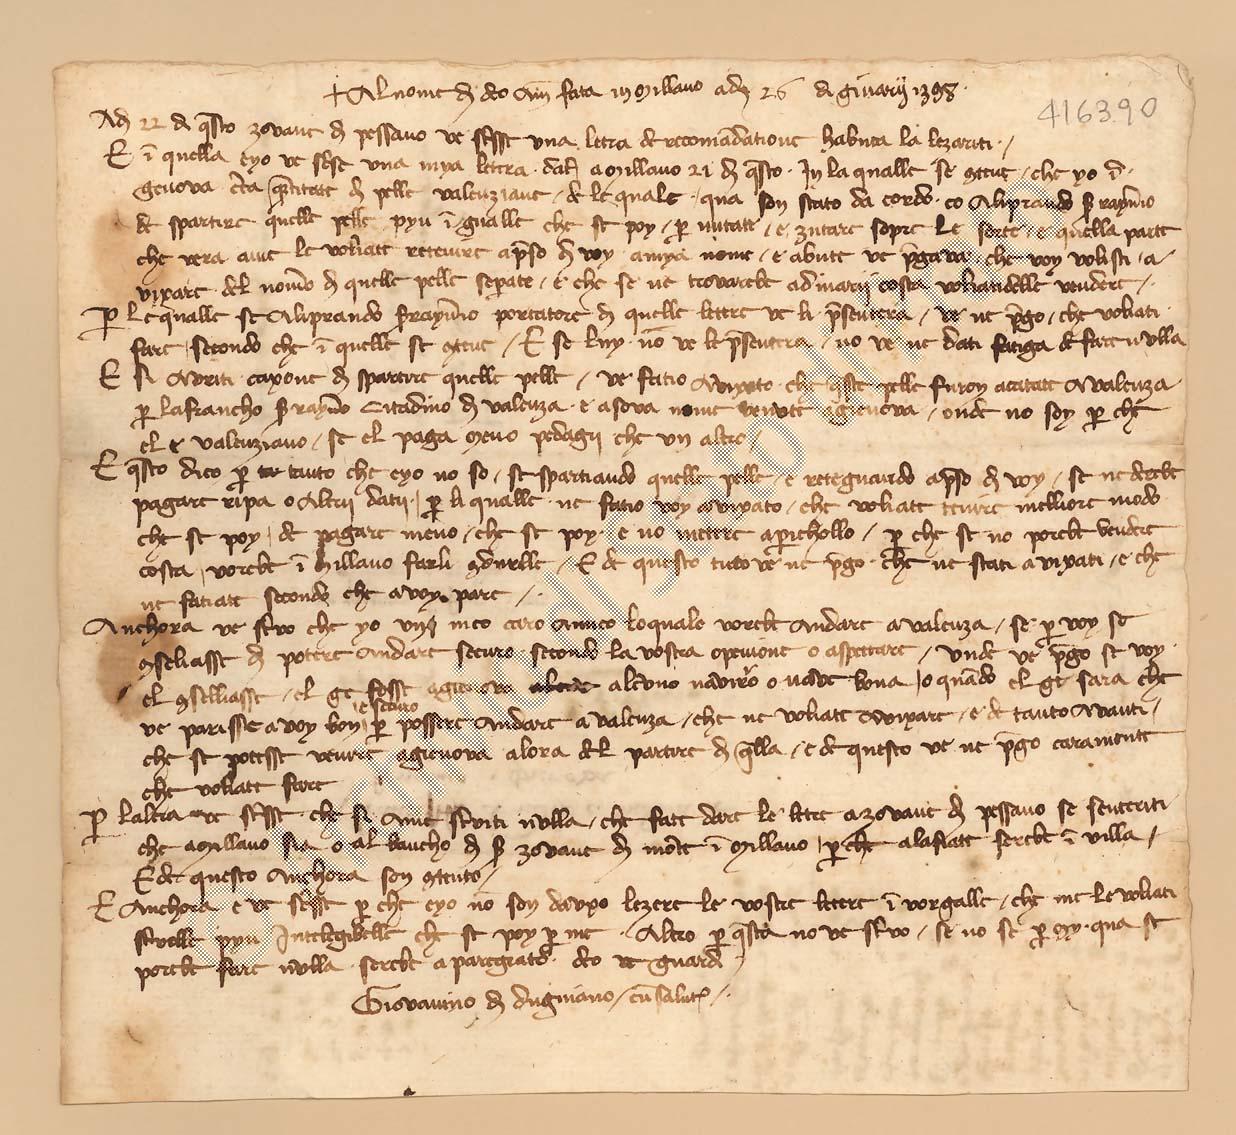 + Al nome de deo amen fata in millano adì 26 di ginarii 1398
416390
Ad 22 di questo zovane de pessano ve scrisse una letra de recomandatione habuta la lezariti
E in quella eyo ve scrise una mya letera data a millano 21 de questo In la qualle se contene che yo ò in
genova certa quantitate de pelle valenziane de le quale qua son stato da cordo co Aliprando Serayneri
de spartire quelle pelle pyu inguallemente che se poy per mitate e zutare sopre le sorte e quella parte
che vera a me le voliate reteuire apresso de voy a mya nome e a bene ve pregava che voy volisti a
vixare del nomero de quelle pelle seperate e che se ne trovarebe a dinarii costa voliandelle vendere
Per le qualle se Aliprando Serayneri portatore de quelle letere ve li presentera ve ne prego che voliati
fare secondo che in quelle se contene E se luy non ve le presentera no ve ne dati fatiga de fare nulla
E si avriti caxone de spartire quelle pelle ve fatio avixato che queste pelle furon acatate a valenza
per lafrancho Serayneri Citadino de valenza e a sova nome venute a gienova onde no soy per che
el e valenziano se el paga meno pedagii che un altro
E questo dico per tanto che eyo no so se spartiando quelle pelle e reteguardo apresso de voy se ne derebe
pagare ripa o altrii datii per li qualle ne fatio voy avixato che voliate tenire melliore modo
che se poy de pagare meno che se poy e no metere a perichollo per che se no porebe vendere
costa vorebe in millano farli condurelle E de questo tuto ve ne prego che ne stati avixati e che
ne fatiate secondo che a voy pare
Anchora ve scrivo che yo uno meo caro amico loquale vorebe andare a valenza se per voy se
conseliasse de potere andare securo secondo la vostra openione o aspettare unde ve prego se voy
el conselliasse el ge fosse a gienova alcuno navirio o nave bona o quando el ge sara che
e securo
ve parisse a voy bon per possere andare a valenza che ne voliate avixare e de tanto avanti
che se potesse venire a gienova alora del partire de quella e de questo ve ne prego caramente
che voliate fare
Per laltra ve scrisse che si a me scriviti nulla che fate dare le letre a zovane de pessano se sentiriti
che a millano sia o al bancho de ser zovane de monte in millano per che alafiate serebe in villa
E de questo anchora son contento
E anchora e ve scrisse per che eyo non son dauxo lezere le vostre letere in vorgalle che me le voliati
scrivelle pyu Intelegibelle che se poy per me Altro per questa no ve scrivo se no se per my qua se
porebe fare nulla serebe aparegiato deo ve guardi
Giovanino de dugniano cum salute